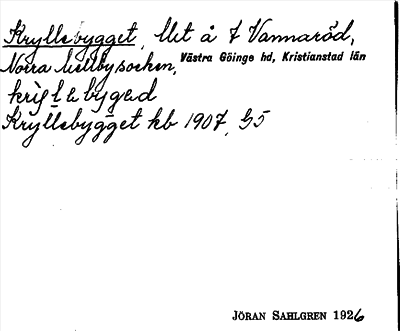 Kryllebygget, Utet å f Vannaröd,
Norra Mellby socken, Västra Göinge hd, Kristianstad län
Kryllebygget kb 1907, 55
JÖRAN SAHLGREN 1926